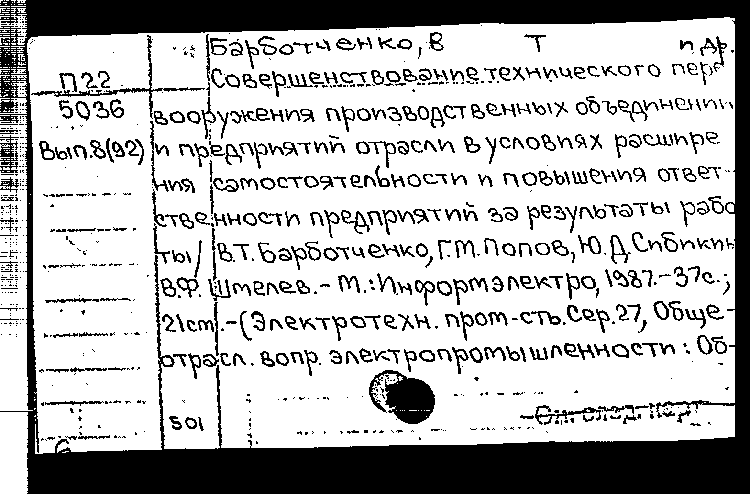 Барботченко, В Т и др.
П22 Совершенствование технического пере
5036 вооружения производственных объединений
Вып.8(92) и предприятий отрасли в условиях расшире
ния самостоятельности и повышения ответ-
ственности предприятий за результаты рабо
ты / В.Т. Барботченко, Г.М. Попов, Ю.Д. Сибикин
В.Ф. Шмелев. - М.: Информэлектро, 1987. - 37с.;
21cm. - (Электротехн. пром-сть. Сер. 27, Обще-
отрасл. вопр. электропромышленности: Об-
501